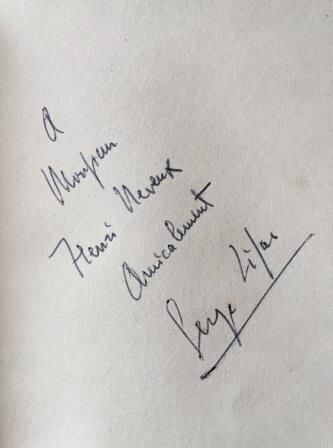 A
Monsieur
Henri Neveux
Amicalement
Serge Lifar